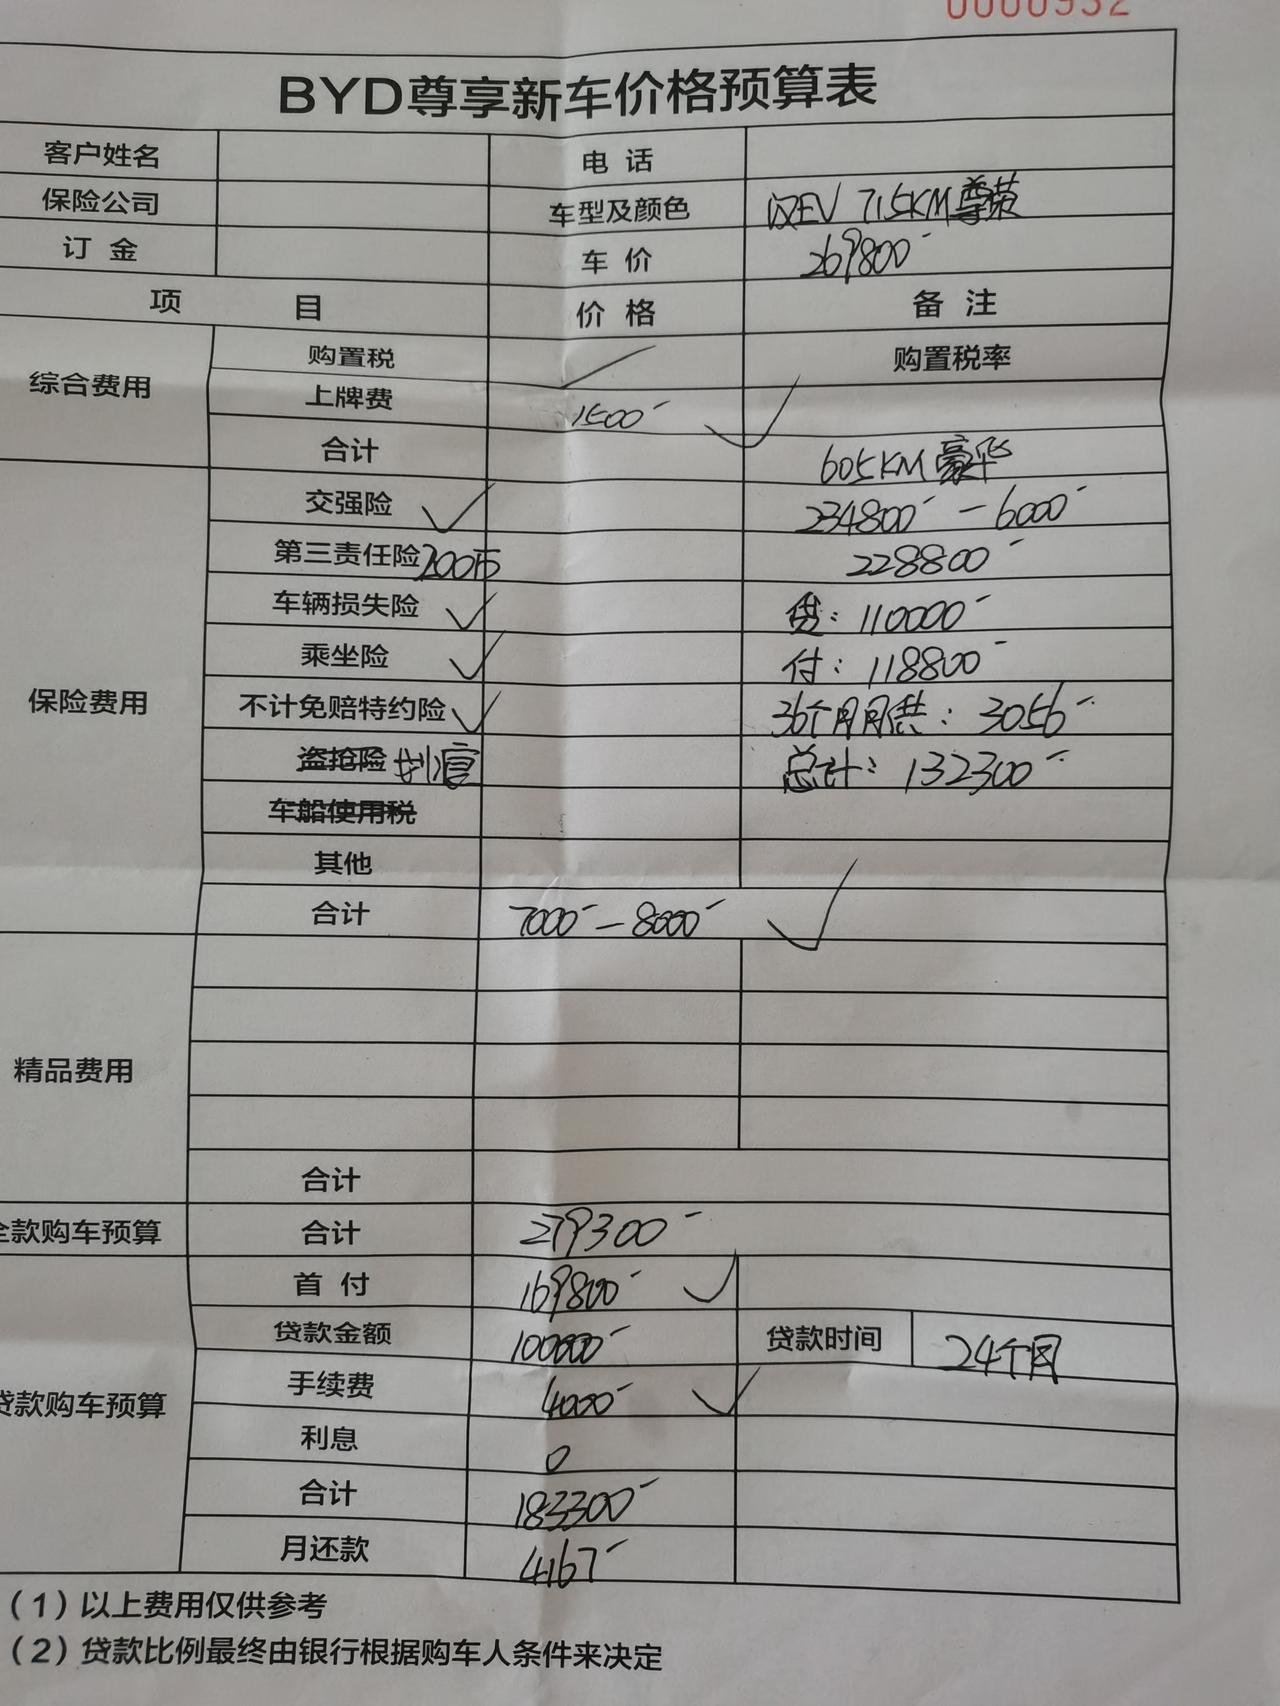 0000932
BYD尊享新车价格预算表
客户姓名 电话
保险公司 车型及颜色 汉EV 715KM尊荣
订金 车价 269800-
项目 价格 备注
综合费用 购置税 购置税率
上牌费 1500-
合计 605KM豪华
保险费用 交强险 234800- - 6000-
第三责任险 200万 228800-
车辆损失险 贷: 110000-
乘坐险 付: 118800-
不计免赔特约险 36个月月供: 3056-
盗抢险 划 总计: 132300-
车船使用税
其他
合计 7000- - 8000-
精品费用
合计
全款购车预算 合计 279300-
贷款购车预算 首付 169800-
贷款金额 100000- 贷款时间 24个月
手续费 4000-
利息 0
合计 183300-
月还款 4167-
（1）以上费用仅供参考
（2）贷款比例最终由银行根据购车人条件来决定